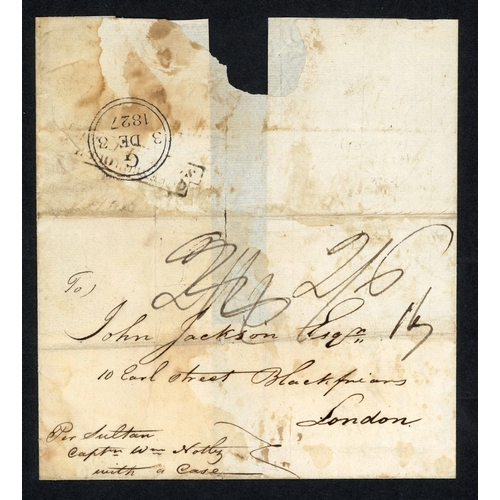 G
3 DE 3
1827
2/4 2/6
To
John Jackson Esqr.
10 Earl Street Blackfriars
London
Per Sultan
Captn Wm Notley
with a Case